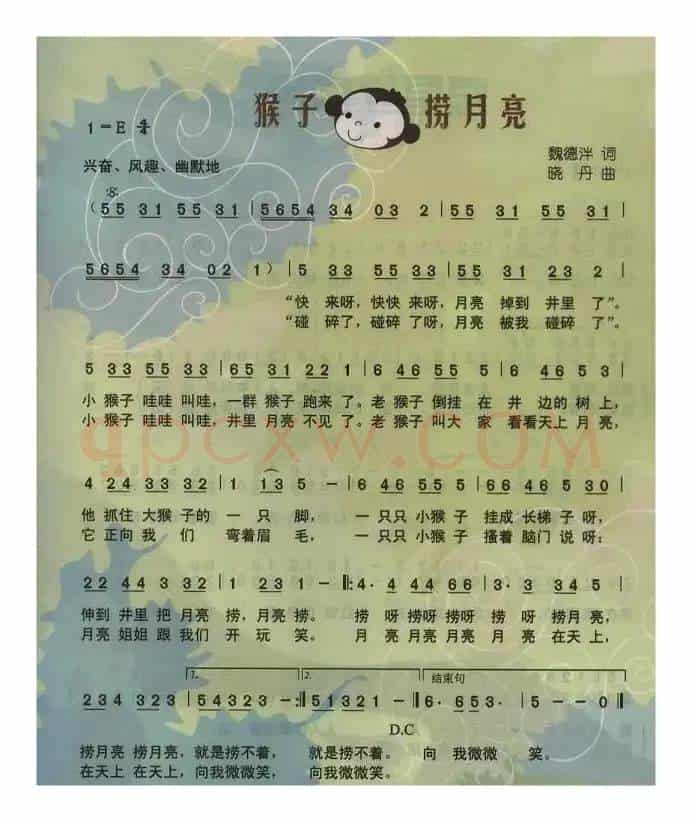 猴子捞月亮
1=E 4/4
兴奋、风趣、幽默地
魏德泮 词
晓丹 曲
(55 31 55 31 | 5654 34 03 2 | 55 31 55 31 |
5654 34 02 1) | 5 33 55 33 | 55 31 23 2 |
“快 来呀，快快 来呀，月亮 掉到 井里 了”。
“碰 碎了，碰碎 了呀，月亮 被我 碰碎 了”。
5 33 55 33 | 65 31 22 1 | 6 46 55 5 | 6 46 53 |
小 猴子 哇哇 叫哇，一群 猴子 跑来 了。老 猴子 倒挂 在 井 边的 树上，
小 猴子 哇哇 叫哇，井里 月亮 不见 了。老 猴子 叫大 家 看看 天上 月 亮，
4 24 33 32 | 1 13 5 - | 6 46 55 5 | 66 46 5 30 |
他 抓住 大猴 子的 一 只 脚， 一 只只 小猴 子 挂成 长梯 子 呀，
它 正向 我 们 弯着 眉 毛， 一 只只 小猴 子 搔着 脑门 说 呀：
22 44 3 32 | 1 23 1 - ‖: 4· 4 44 66 | 3· 3 345 |
伸到 井里 把 月亮 捞，月亮 捞。 捞 呀 捞呀 捞呀 捞 呀 捞月 亮，
月亮 姐姐 跟 我们 开 玩 笑。 月 亮 月亮 月亮 月 亮 在天 上，
1. 2. 结束句
234 323 | 54323 - :‖ 51321 - ‖ 6· 653· | 5 - - 0 ‖
D.C
捞月亮 捞月亮，就是捞不着， 就是捞不着。 向 我微微 笑。
在天上 在天上，向我微微笑， 向我微微笑。
qpcxw.com